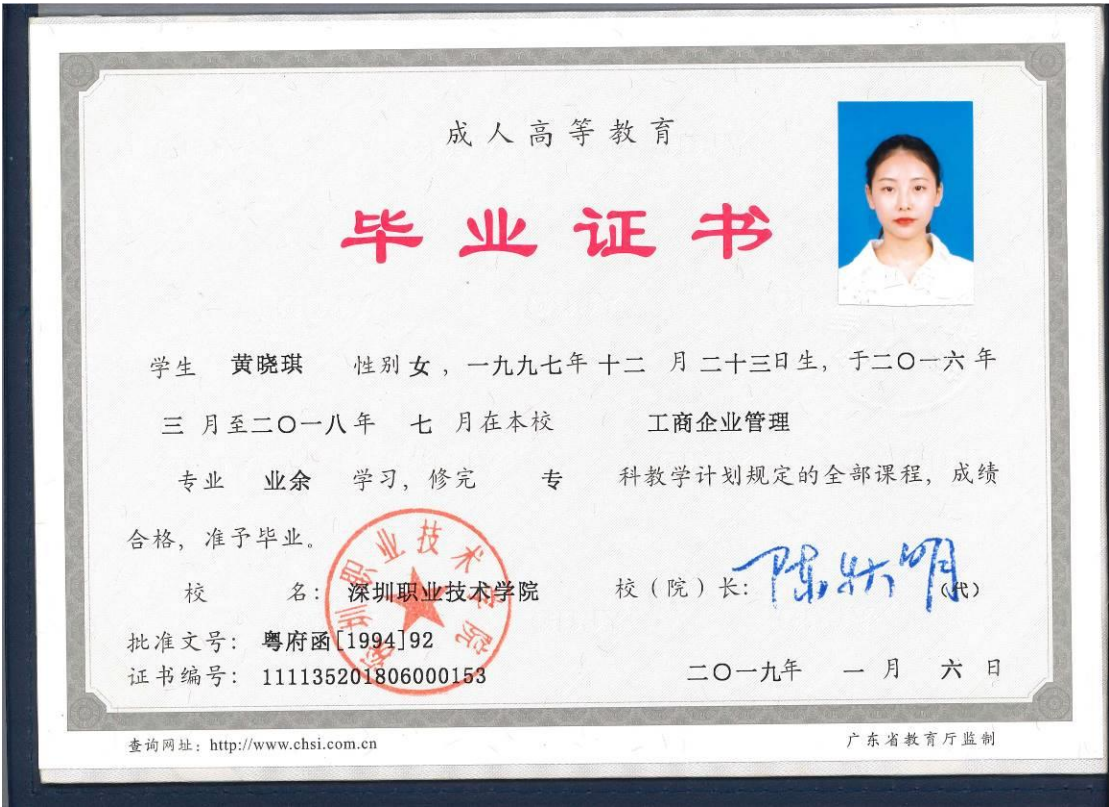 成人高等教育
毕业证书
学生 黄晓琪 性别 女 ，一九九七年 十二 月 二十三日生，于二〇一六 年
三 月至二〇一八年 七 月在本校 工商企业管理
专业 业余 学习，修完 专 科教学计划规定的全部课程，成绩
合格，准予毕业。
深圳职业技术学院
校 名：深圳职业技术学院 校（院）长： （代）
批准文号：粤府函[1994]92
证书编号：111135201806000153 二〇一九年 一 月 六 日
查询网址：http://www.chsi.com.cn 广东省教育厅监制